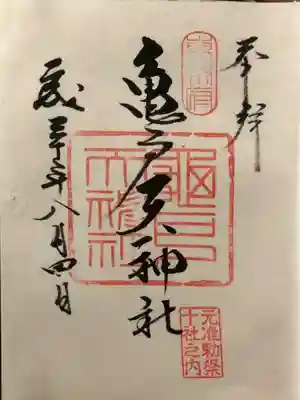 奉拝
東宰府
亀戸天神社
龜戸天神社
元准勅祭
十社之内
平成三十年八月四日